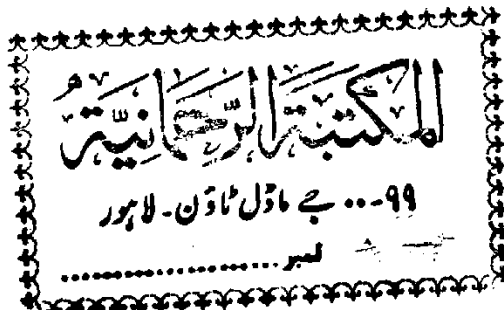 المكتبة الرحمانية
۹۹... جے ماڈل ٹاؤن۔ لاہور
نمبر ....................